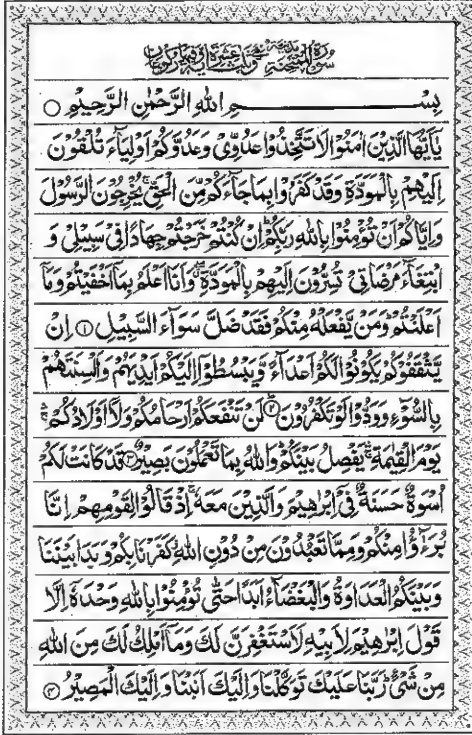 سُوْرَةُ الْمُمْتَحِنَةِ مَدَنِيَّةٌ وَّهِيَ ثَلٰثَ عَشَرَةَ اٰيَةً وَّفِيْهَا رُكُوْعَانِ
بِسْمِ اللهِ الرَّحْمٰنِ الرَّحِيْمِ ○
يٰۤاَيُّهَا الَّذِيْنَ اٰمَنُوْا لَا تَتَّخِذُوْا عَدُوِّيْ وَعَدُوَّكُمْ اَوْلِيَآءَ تُلْقُوْنَ
اِلَيْهِمْ بِالْمَوَدَّةِ وَقَدْ كَفَرُوْا بِمَا جَآءَكُمْ مِّنَ الْحَقِّ ۚ يُخْرِجُوْنَ الرَّسُوْلَ
وَاِيَّاكُمْ اَنْ تُؤْمِنُوْا بِاللهِ رَبِّكُمْ ؕ اِنْ كُنْتُمْ خَرَجْتُمْ جِهَادًا فِيْ سَبِيْلِيْ وَ
ابْتِغَآءَ مَرْضَاتِيْ تُسِرُّوْنَ اِلَيْهِمْ بِالْمَوَدَّةِ ۖ وَاَنَا اَعْلَمُ بِمَاۤ اَخْفَيْتُمْ وَمَاۤ
اَعْلَنْتُمْ ؕ وَمَنْ يَّفْعَلْهُ مِنْكُمْ فَقَدْ ضَلَّ سَوَآءَ السَّبِيْلِ ① اِنْ
يَّثْقَفُوْكُمْ يَكُوْنُوْا لَكُمْ اَعْدَآءً وَّيَبْسُطُوْۤا اِلَيْكُمْ اَيْدِيَهُمْ وَاَلْسِنَتَهُمْ
بِالسُّوْٓءِ وَوَدُّوْا لَوْ تَكْفُرُوْنَ ② لَنْ تَنْفَعَكُمْ اَرْحَامُكُمْ وَلَاۤ اَوْلَادُكُمْ ۛ
يَوْمَ الْقِيٰمَةِ ۛ يَفْصِلُ بَيْنَكُمْ ؕ وَاللهُ بِمَا تَعْمَلُوْنَ بَصِيْرٌ ③ قَدْ كَانَتْ لَكُمْ
اُسْوَةٌ حَسَنَةٌ فِيْۤ اِبْرٰهِيْمَ وَالَّذِيْنَ مَعَهٗ ۚ اِذْ قَالُوْا لِقَوْمِهِمْ اِنَّا
بُرَءٰٓؤُا مِنْكُمْ وَمِمَّا تَعْبُدُوْنَ مِنْ دُوْنِ اللهِ ؗ كَفَرْنَا بِكُمْ وَبَدَا بَيْنَنَا
وَبَيْنَكُمُ الْعَدَاوَةُ وَالْبَغْضَآءُ اَبَدًا حَتّٰى تُؤْمِنُوْا بِاللهِ وَحْدَهٗۤ اِلَّا
قَوْلَ اِبْرٰهِيْمَ لِاَبِيْهِ لَاَسْتَغْفِرَنَّ لَكَ وَمَاۤ اَمْلِكُ لَكَ مِنَ اللهِ
مِنْ شَيْءٍ ؕ رَبَّنَا عَلَيْكَ تَوَكَّلْنَا وَاِلَيْكَ اَنَبْنَا وَاِلَيْكَ الْمَصِيْرُ ④